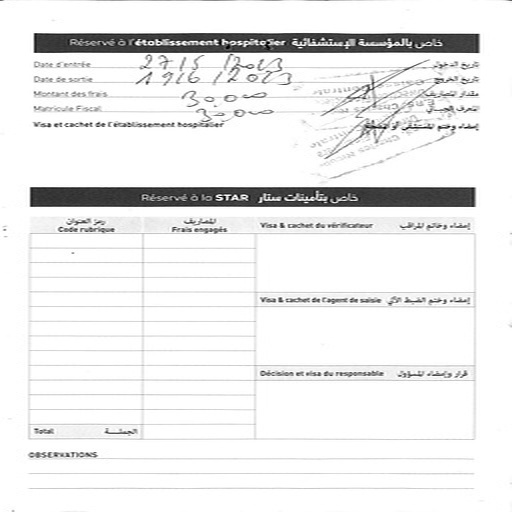 Réservé à l'établissement hospitalier خاص بالمؤسسة الإستشفائية
Date d'entrée 27/5/2023 تاريخ الدخول
Date de sortie 2023 تاريخ الخروج
Montant des frais 30.000 مقدار المصاريف
Matricule Fiscal 30.000 المعرف الجبائي
Visa et cachet de l'établissement hospitalier إمضاء وختم المستشفى أو المصحة
Réservé à la STAR خاص بتأمينات ستار
رمز العنوان المصاريف
Code rubrique Frais engagés Visa & cachet du vérificateur إمضاء وخاتم المراقب
Visa & cachet de l'agent de saisie إمضاء وختم الضبط الآلي
Décision et visa du responsable قرار وإمضاء المسؤول
Total الجملة
OBSERVATIONS